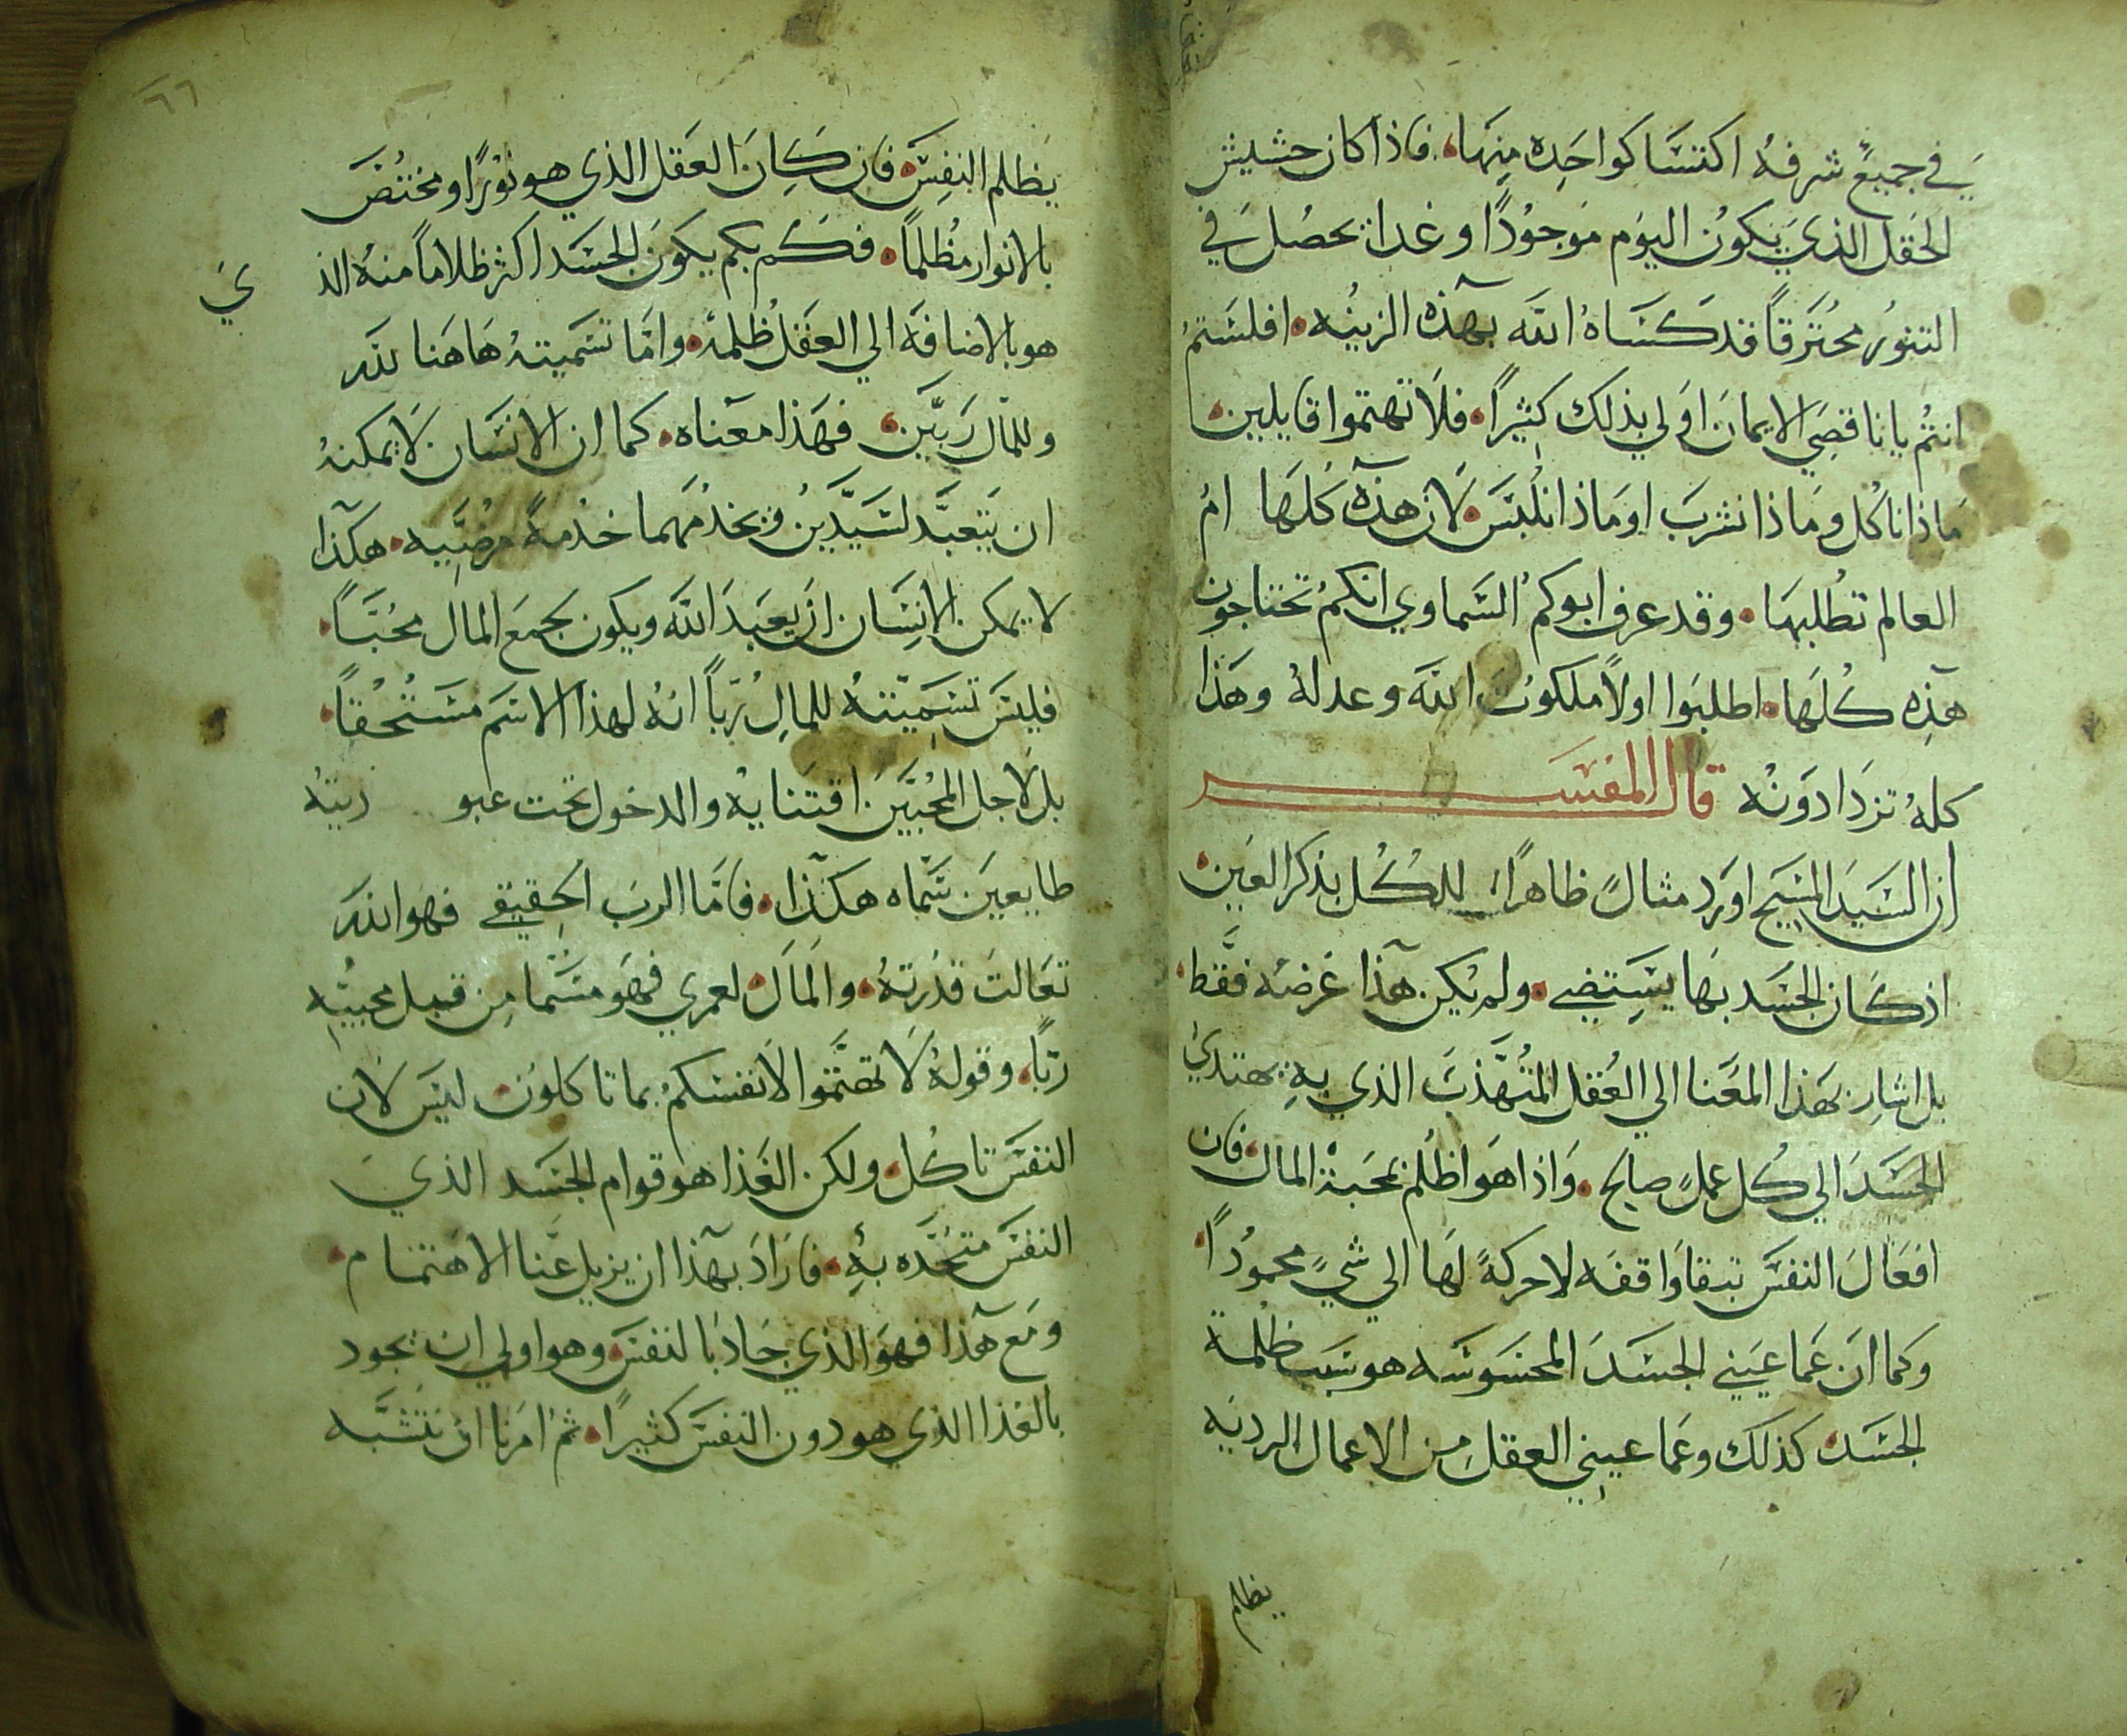 في جميع شرفه اكتسا كواحده منها. فاذا كان حشيش
الحقل الذي يكون اليوم موجودًا وغدا يحصل في
التنور محترقًا قد كساهُ الله بهذه الزينه. افلستم
انتم يا ناقصي الايمان اولي بذلك كثيرًا. فلا تهتموا قايلين
ماذا ناكل وماذا نشرب او ماذا نلبس لان هذه كلها امم
العالم تطلبها. وقد عرف ابوكم السماوي انكم تحتاجون
هذه كلها. اطلبوا اولاً ملكوت الله وعدله وهذا
كله تزدادونه قال المفسر
ان السيد المسيح اورد مثالً ظاهرًا للكل بذكر العين
اذ كان الجسد بها يستضي. ولم يكن هذا غرضه فقط
بل اشار بهذا المعنا الي العقل المتهذب الذي به يهتدي
الجسد الي كل عملٍ صالح. واذا هو اظلم بمحبة المال فان
افعال النفس تبقا واقفه لا حركةً لها الي شيٍ محمودًا
وكما ان عما عيني الجسد المحسوسه هو سبب ظلمة
الجسد كذلك وعما عيني العقل من الاعمال الرديه
يظلم
٦٦
يظلم النفس فان كان العقل الذي هو نورًا ومختص
بالانوار مظلماً. فكم بكم يكون الجسد اكثر ظلاماً منه الذي
هو بالاضافه الي العقل ظلمه. واما تسميته هاهنا لله
وللمال ربَّين فهذا معناه. كما ان الانسان لا يمكنه
ان يتعبد لسيّدين ويخدمهما خدمةً مرضيه. هكذا
لا يمكن الانسان ان يعبد الله ويكون بجمع المال محبًا.
فليس تسميته للمال ربّاً انه لهذا الاسم مستحقاً.
بل لاجل المحبين اقتنايه والدخول تحت عبوديته
طايعين سماه هكذا. فاما الرب الحقيقي فهو الله
تعالت قدرته. والمال لعمري فهو مسما من قبل محبيه
ربّاً. وقوله لا تهتموا لانفسكم بما تاكلون ليس لان
النفس تاكل. ولكن الغذا هو قوام الجسد الذي
النفس متحده به. فاراد بهذا ان يزيل عنا الاهتمام.
ومع هذا فهو الذي جاد بالنفس وهو اولي ان يجود
بالغذا الذي هو دون النفس كثيرًا. ثم امرنا ان نتشبه